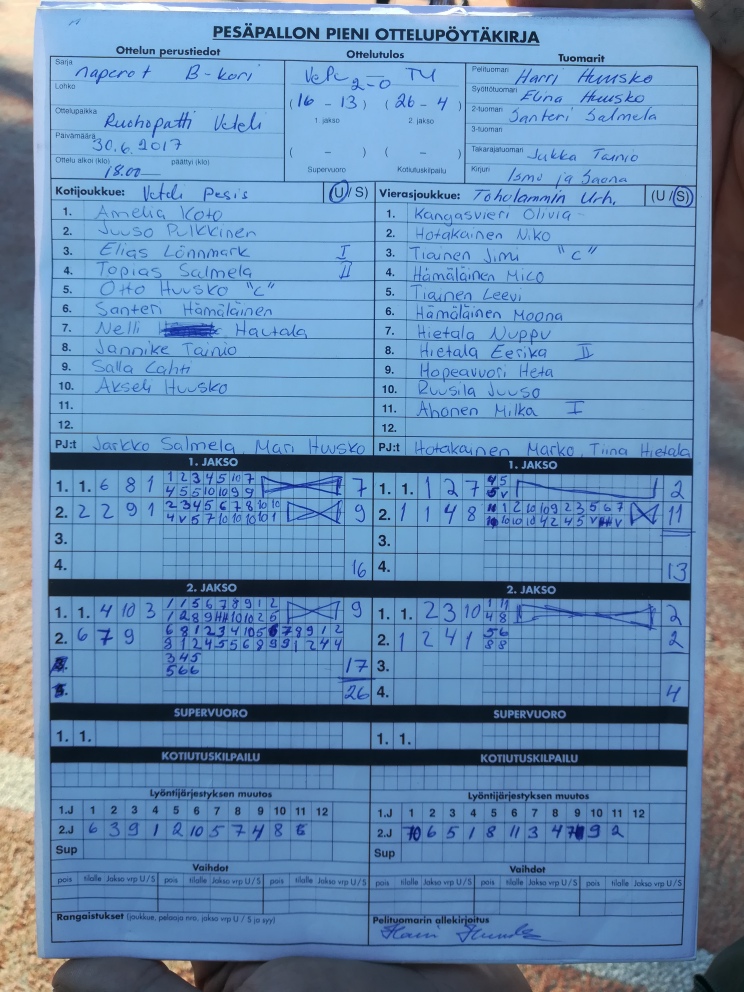 PESÄPALLON PIENI OTTELUPÖYTÄKIRJA
Ottelun perustiedot
Sarja naperot B-kori
Lohko
Ottelupaikka Ruohopatti Veteli
Päivämäärä 30.6.2017
Ottelu alkoi (klo) 18.00 päättyi (klo)
Ottelutulos
VePe 2-0 TU
(16 - 13) (26 - 4)
1. jakso 2. jakso
( - ) ( - )
Supervuoro Kotiutuskilpailu
Tuomarit
Pelituomari Harri Huusko
Syöttötuomari Elina Huusko
2-tuoman Santeri Salmela
3-tuoman
Takarajatuoman Jukka Tainio
Kirjuri Ismo ja Saana
Kotijoukkue: Veteli Pesis (U/S)
1. Amelia Koto
2. Juuso Pulkkinen
3. Elias Lönnmark I
4. Topias Salmela II
5. Otto Huusko "C"
6. Santeri Hämäläinen
7. Nelli Hautala
8. Jannike Tainio
9. Salla Lahti
10. Akseli Huusko
11.
12.
PJ:t Jarkko Salmela, Mari Huusko
Vierasjoukkue: Toholammin Urh. (U/S)
1. Kangasvieri Olivia
2. Hotakainen Niko
3. Tiainen Jimi "C"
4. Hämäläinen Mico
5. Tiainen Leevi
6. Hämäläinen Moona
7. Hietala Nuppu
8. Hietala Eerika II
9. Hopeavuori Heta
10. Ruusila Juuso
11. Ahonen Milka I
12.
PJ:t Hotakainen Marko, Tiina Hietala
1. JAKSO
1. 1. 6 8 1 1 2 3 4 5 10 7 7
4 5 5 10 10 9 9
2. 2 2 9 1 2 3 4 5 6 7 8 10 10 9
4 v 5 7 10 10 10 10 1
3.
4. 16
1. JAKSO
1. 1. 1 2 7 4 5 2
5 v
2. 1 1 4 8 1 2 10 10 9 2 3 5 6 7 11
3.
4. 13
2. JAKSO
1. 1. 4 10 3 1 1 5 6 7 8 9 1 2 9
2. 6 7 9 6 8 1 2 3 4 10 5 6 7 8 9 1 2
9 1 2 4 5 5 6 8 9 9 1 2 4 4
3 4 5 17
5 6 6
26
2. JAKSO
1. 1. 2 3 10 1 11 2
4 8
2. 1 2 4 1 5 6 2
8 8
3.
4. 4
SUPERVUORO
1. 1.
SUPERVUORO
1. 1.
KOTIUTUSKILPAILU
KOTIUTUSKILPAILU
Lyöntijärjestyksen muutos
1.J 1 2 3 4 5 6 7 8 9 10 11 12
2.J 6 3 9 1 2 10 5 7 4 8
Sup
Lyöntijärjestyksen muutos
1.J 1 2 3 4 5 6 7 8 9 10 11 12
2.J 10 6 5 1 8 11 3 4 7 9 2
Sup
Vaihdot
pois tilalle Jakso vrp U/S pois tilalle Jakso vrp U/S pois tilalle Jakso vrp U/S
Vaihdot
pois tilalle Jakso vrp U/S pois tilalle Jakso vrp U/S pois tilalle Jakso vrp U/S
Rangaistukset (joukkue, pelaaja nro, jakso vrp U / S ja syy)
Pelituomarin allekirjoitus
Harri Huusko